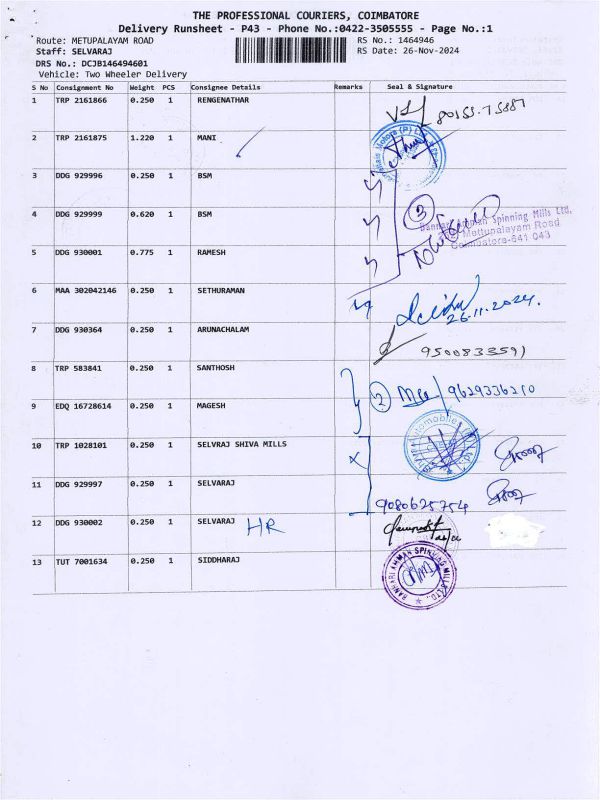 THE PROFESSIONAL COURIERS, COIMBATORE
Delivery Runsheet - P43 - Phone No.:0422-3505555 - Page No.:1
Route: METUPALAYAM ROAD RS No.: 1464946
Staff: SELVARAJ RS Date: 26-Nov-2024
DRS No.: DCJB146494601
Vehicle: Two Wheeler Delivery
S No Consignment No Weight PCS Consignee Details Remarks Seal & Signature
1 TRP 2161866 0.250 1 RENGENATHAR
2 TRP 2161875 1.220 1 MANI
3 DDG 929996 0.250 1 BSM
4 DDG 929999 0.620 1 BSM 3
Bannari Amman Spinning Mills Ltd.
Mettupalayam Road
Coimbatore-641 043
5 DDG 930001 0.775 1 RAMESH
6 MAA 302042146 0.250 1 SETHURAMAN
26.11.2024.
7 DDG 930364 0.250 1 ARUNACHALAM 9500833591
8 TRP 583841 0.250 1 SANTHOSH
2 9629336210
9 EDQ 16728614 0.250 1 MAGESH
10 TRP 1028101 0.250 1 SELVRAJ SHIVA MILLS
11 DDG 929997 0.250 1 SELVARAJ
9080625754
12 DDG 930002 0.250 1 SELVARAJ HR
13 TUT 7001634 0.250 1 SIDDHARAJ
BANNARI AMMAN SPINNING MILLS LTD.